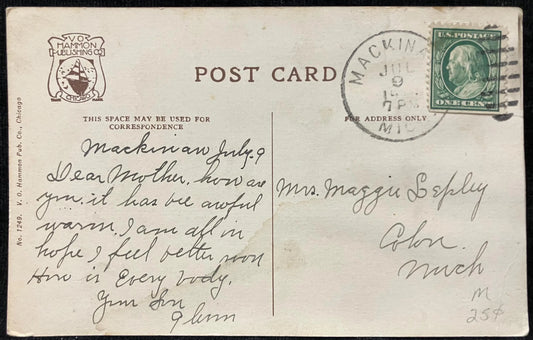 V.O.
HAMMON
PUBLISHING CO.
CHICAGO
POST CARD
THIS SPACE MAY BE USED FOR
CORRESPONDENCE
FOR ADDRESS ONLY
No. 1249. V. O. Hammon Pub. Co., Chicago
MACKINA
JUL
9
7 PM
MIC
U.S. POSTAGE
ONE CENT
Mackinaw July. 9
Dear Mother, how are
you. it has bee awful
warm. I am all in
hope I feel better soon
How is Every body.
Your Son
Glenn
Mrs. Maggie Lepley
Colon.
Mich
M
25¢